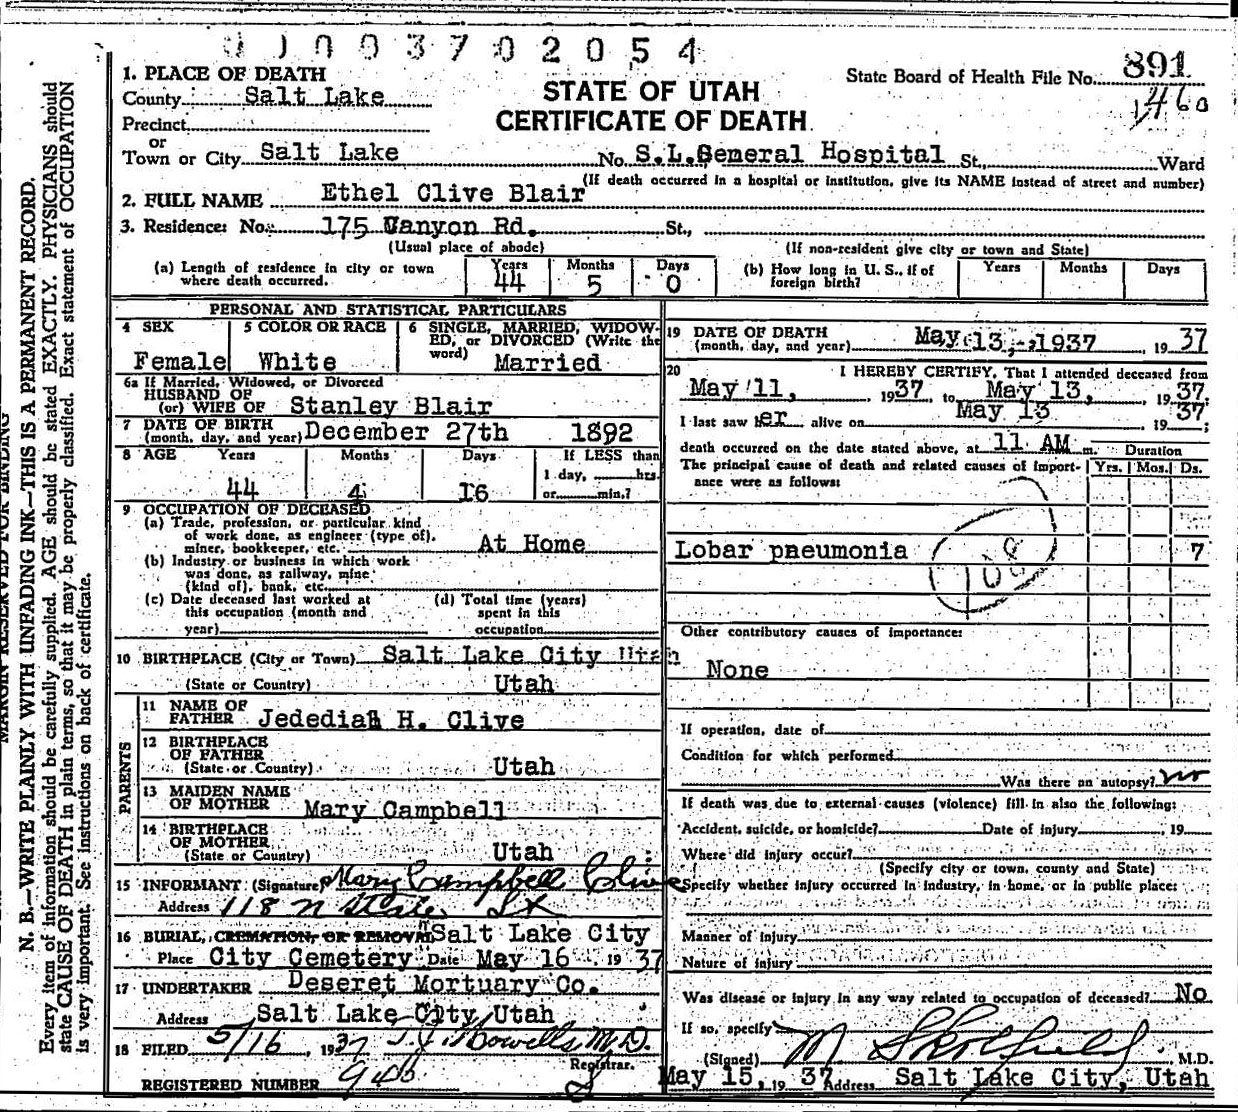 0 1 0 0 3 7 0 2 0 5 4
STATE OF UTAH
CERTIFICATE OF DEATH
State Board of Health File No. 891
1460
1. PLACE OF DEATH
County Salt Lake
Precinct
or
Town or City Salt Lake No. S.L.General Hospital St., Ward
(If death occurred in a hospital or institution, give its NAME instead of street and number)
2. FULL NAME Ethel Clive Blair
3. Residence: No. 175 Canyon Rd. St.,
(Usual place of abode) (If non-resident give city or town and State)
(a) Length of residence in city or town where death occurred. Years 44 Months 5 Days 0
(b) How long in U. S., if of foreign birth? Years Months Days
PERSONAL AND STATISTICAL PARTICULARS
4 SEX Female
5 COLOR OR RACE White
6 SINGLE, MARRIED, WIDOW-
ED, or DIVORCED (Write the
word) Married
6a If Married, Widowed, or Divorced
HUSBAND OF
(or) WIFE OF Stanley Blair
7 DATE OF BIRTH
(month, day, and year) December 27th 1892
8 AGE Years Months Days If LESS than
44 4 16 1 day, hrs.
or min.?
9 OCCUPATION OF DECEASED
(a) Trade, profession, or particular kind
of work done, as engineer (type of),
miner, bookkeeper, etc. At Home
(b) Industry or business in which work
was done, as railway, mine
(kind of), bank, etc.
(c) Date deceased last worked at
this occupation (month and
year)
(d) Total time (years)
spent in this
occupation
10 BIRTHPLACE (City or Town) Salt Lake City Utah
(State or Country) Utah
PARENTS
11 NAME OF
FATHER Jedediah H. Clive
12 BIRTHPLACE
OF FATHER
(State or Country) Utah
13 MAIDEN NAME
OF MOTHER Mary Campbell
14 BIRTHPLACE
OF MOTHER
(State or Country) Utah
15 INFORMANT (Signature) Mary Campbell Clive
Address 118 N State
16 BURIAL, CREMATION, OR REMOVAL Salt Lake City
Place City Cemetery Date May 16 19 37
17 UNDERTAKER Deseret Mortuary Co.
Address Salt Lake City, Utah
18 FILED 5/16, 1937 Howells M.D.
Registrar.
REGISTERED NUMBER 940
19 DATE OF DEATH
(month, day, and year) May 13, 1937, 19 37
20 I HEREBY CERTIFY, That I attended deceased from
May 11, 1937, to May 13, 1937.
I last saw her alive on May 13, 1937;
death occurred on the date stated above, at 11 AM m. Duration
The principal cause of death and related causes of import-
ance were as follows: Yrs. Mos. Ds.
Lobar pneumonia 7
108
Other contributory causes of importance:
None
If operation, date of
Condition for which performed
Was there an autopsy? no
If death was due to external causes (violence) fill in also the following:
Accident, suicide, or homicide? Date of injury, 19
Where did injury occur?
(Specify city or town, county and State)
Specify whether injury occurred in industry, in home, or in public place:
Manner of injury
Nature of injury
Was disease or injury in any way related to occupation of deceased? No
If so, specify
(Signed) M. M.D.
May 15, 19 37 Address Salt Lake City, Utah
MARGIN RESERVED FOR BINDING
N. B.—WRITE PLAINLY WITH UNFADING INK—THIS IS A PERMANENT RECORD.
Every item of information should be carefully supplied. AGE should be stated EXACTLY. PHYSICIANS should
state CAUSE OF DEATH in plain terms, so that it may be properly classified. Exact statement of OCCUPATION
is very important. See instructions on back of certificate.